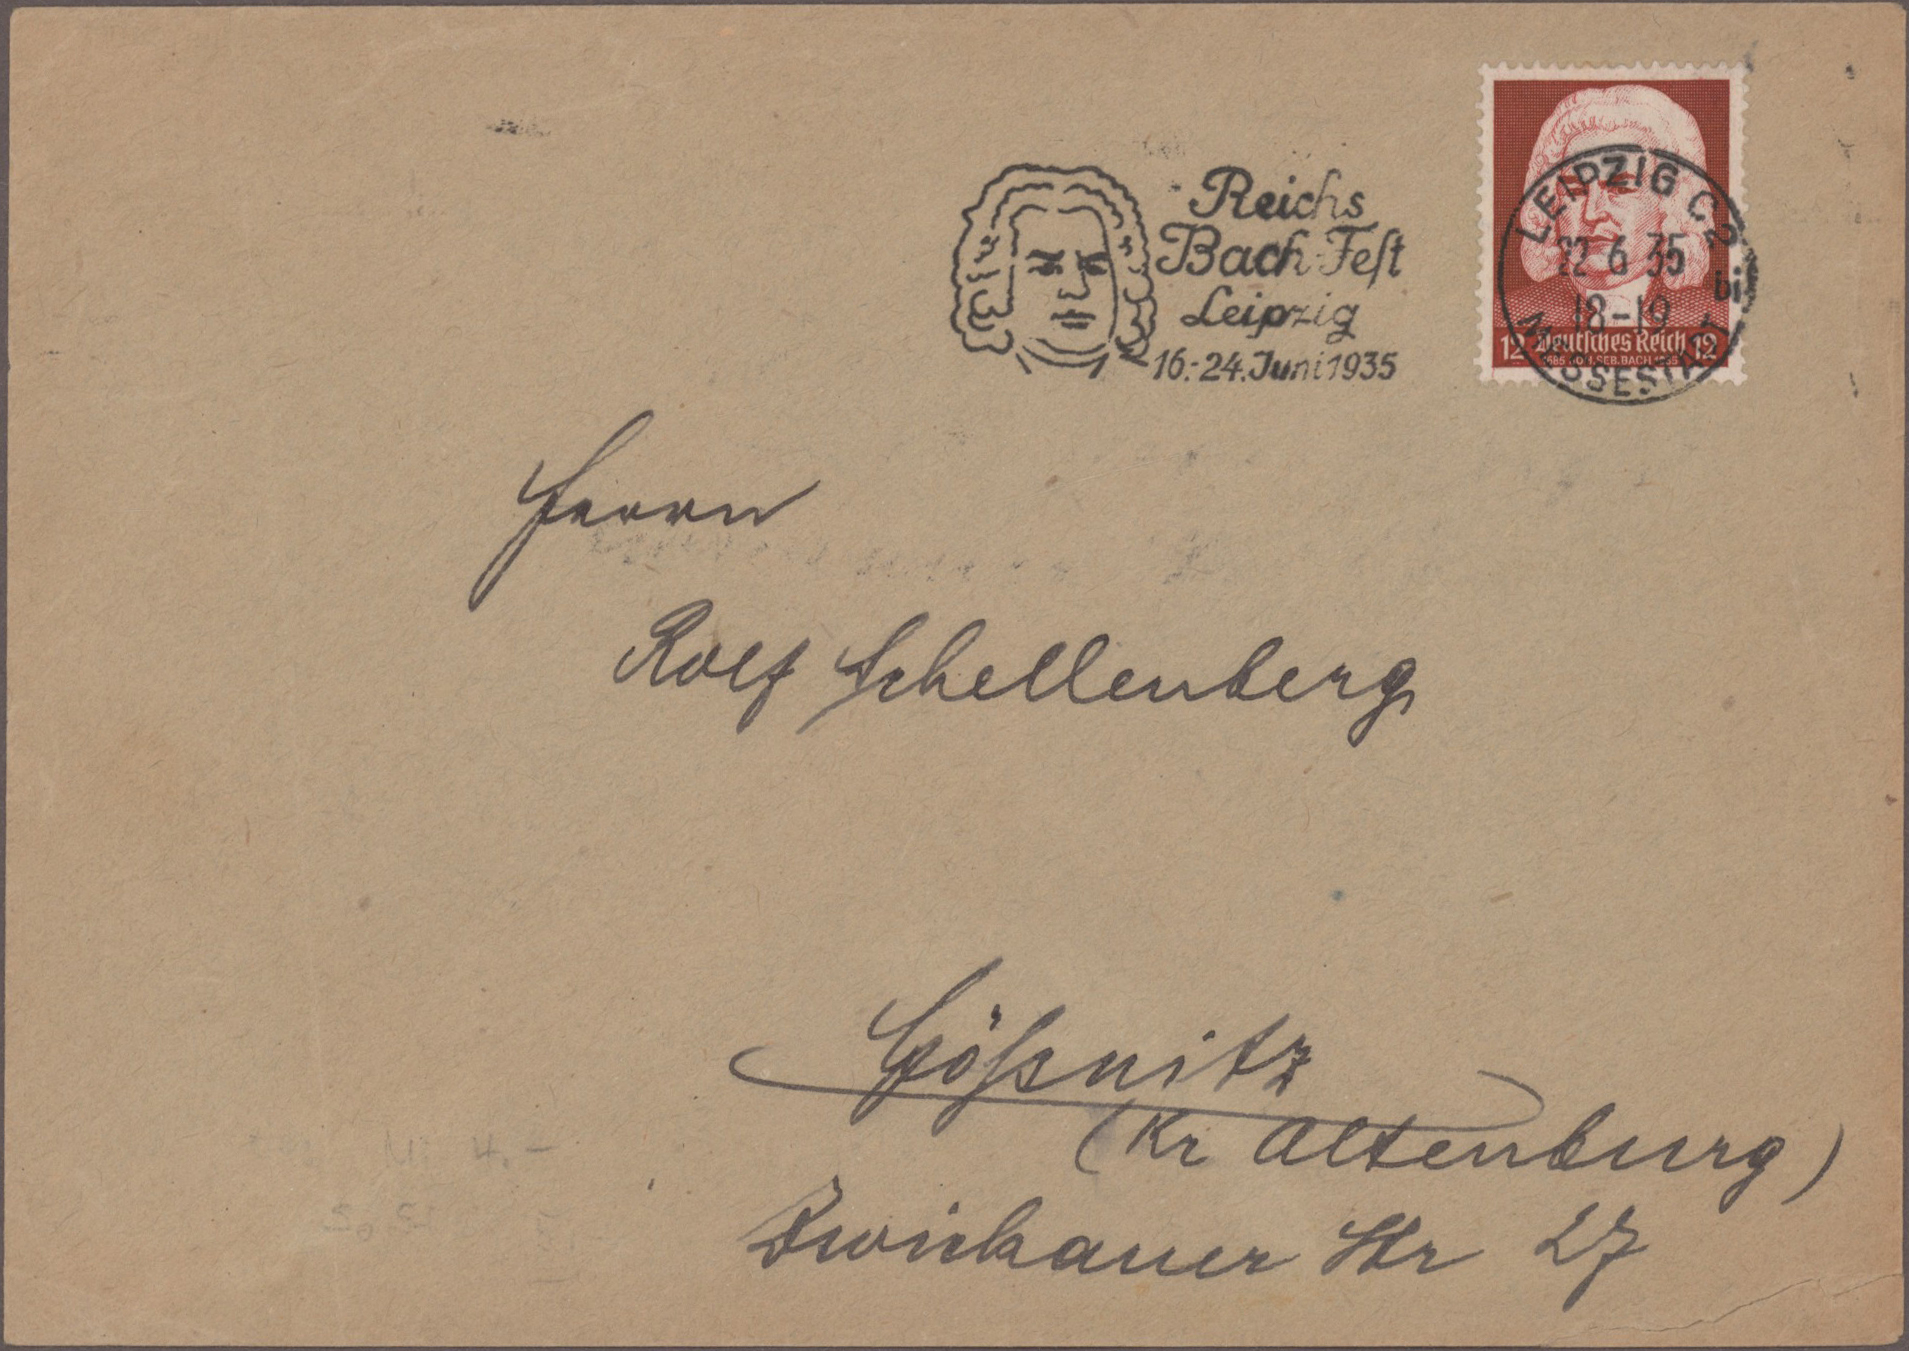 Reichs
Bach-Fest
Leipzig
16.-24. Juni 1935
LEIPZIG C2
22 6 35
18-19
bi
MESSESTADT
12 Deutsches Reich 12
1685 JOH. SEB. BACH 1935
Herrn
Rolf Schellenberg
Gößnitz
(Kr Altenburg)
Zwickauer Str 27